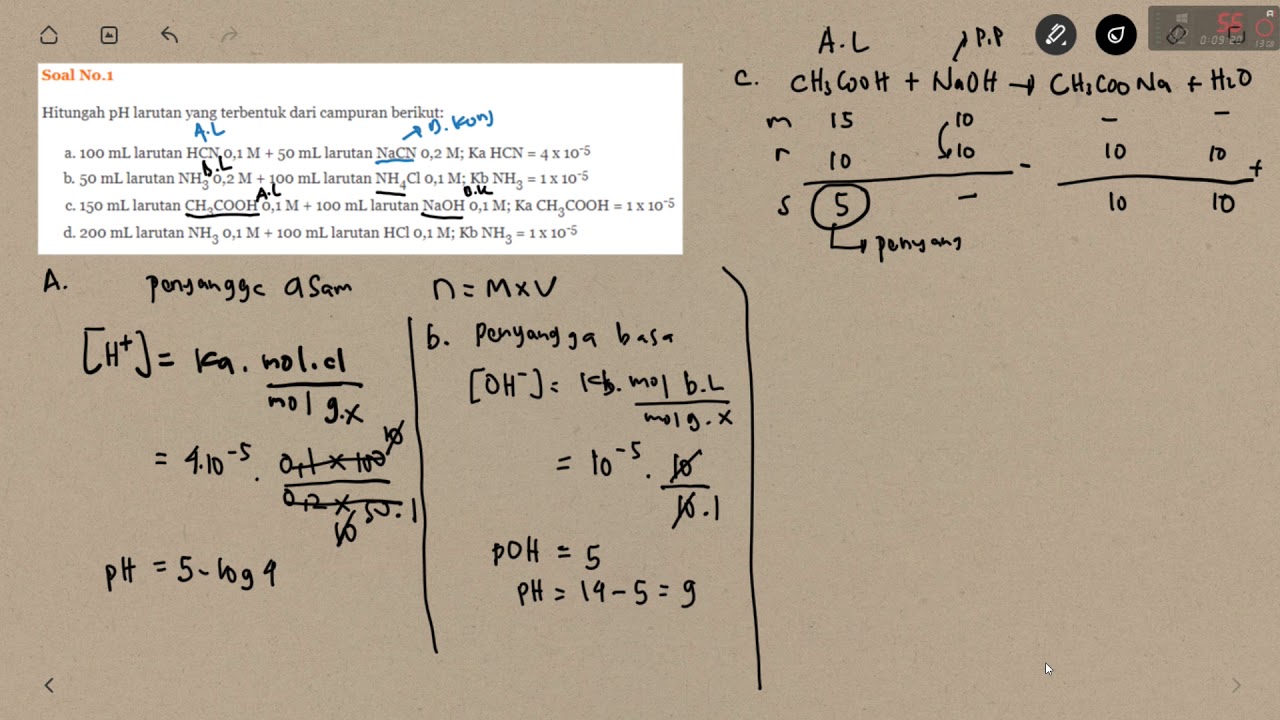 Soal No.1
Hitungah pH larutan yang terbentuk dari campuran berikut:
A.L
B. Konj
a. 100 mL larutan HCN 0,1 M + 50 mL larutan NaCN 0,2 M; Ka HCN = 4 x 10⁻⁵
B.L
b. 50 mL larutan NH₃ 0,2 M + 100 mL larutan NH₄Cl 0,1 M; Kb NH₃ = 1 x 10⁻⁵
A.L
B.K
c. 150 mL larutan CH₃COOH 0,1 M + 100 mL larutan NaOH 0,1 M; Ka CH₃COOH = 1 x 10⁻⁵
d. 200 mL larutan NH₃ 0,1 M + 100 mL larutan HCl 0,1 M; Kb NH₃ = 1 x 10⁻⁵
A. Penyangga asam n = M x V
[H⁺] = Ka . mol.a
mol g.x
= 4.10⁻⁵ . 0,1 x 100 10
0,2 x 50 . 1
10
pH = 5 - log 4
b. Penyangga basa
[OH⁻] = Kb. mol b.L
mol g.x
= 10⁻⁵ . 10
10 . 1
pOH = 5
pH = 14 - 5 = 9
A.L P.P
C. CH₃COOH + NaOH → CH₃COONa + H₂O
m 15 10 - -
r 10 10 - 10 10 +
s 5 - 10 10
penyang
56
0:09:20